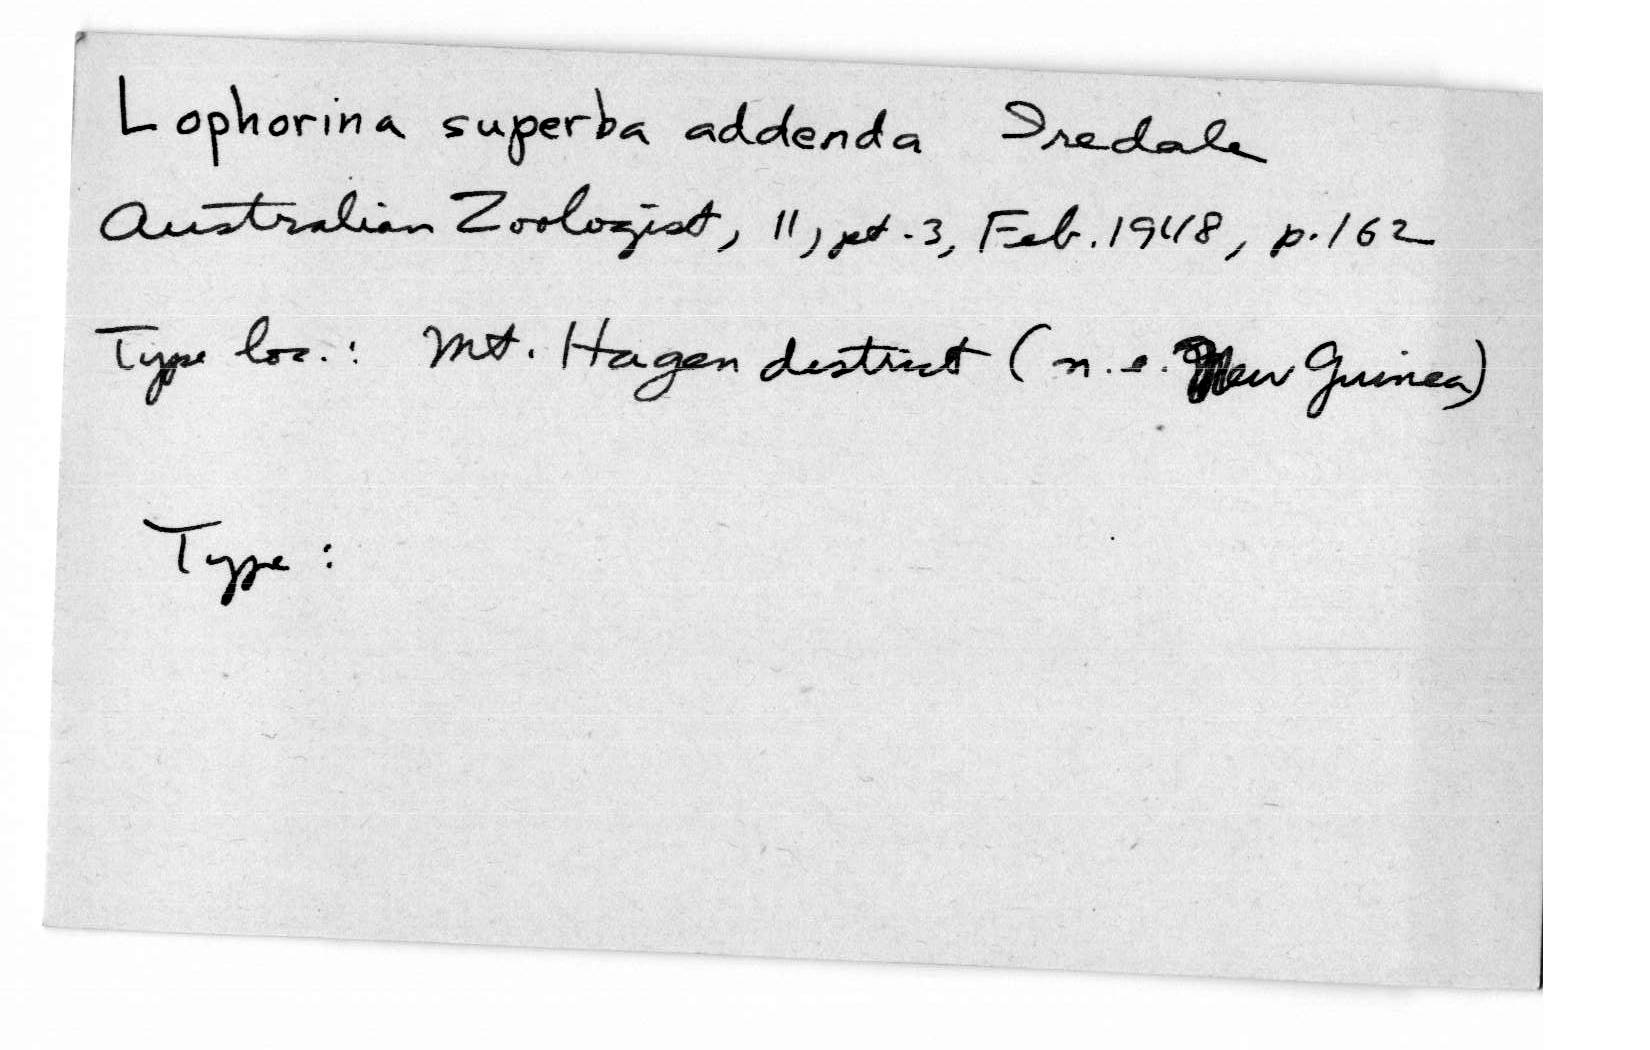 Lophorina superba addenda Iredale
Australian Zoologist, 11, pt. 3, Feb. 1948, p. 162
Type loc.: Mt. Hagen district (n.e. New Guinea)
Type: